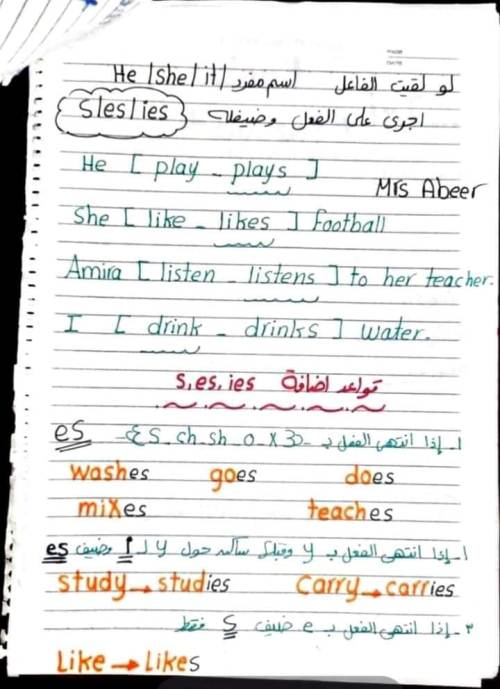 لو لقيت الفاعل He / she / it / اسم مفرد
اجرى على الفعل وضيفله s/es/ies
He [ play - plays ]
Mrs Abeer
She [ like - likes ] football
Amira [ listen - listens ] to her teacher.
I [ drink - drinks ] water.
قواعد اضافة s, es, ies
١- إذا انتهى الفعل بـ s ch sh o x z es
washes goes does
mixes teaches
إذا انتهى الفعل بـ y وقبلها ساكن حول y لـ i وضيف es
study → studies carry → carries
٣- إذا انتهى الفعل بـ e ضيف s فقط
Like → Likes